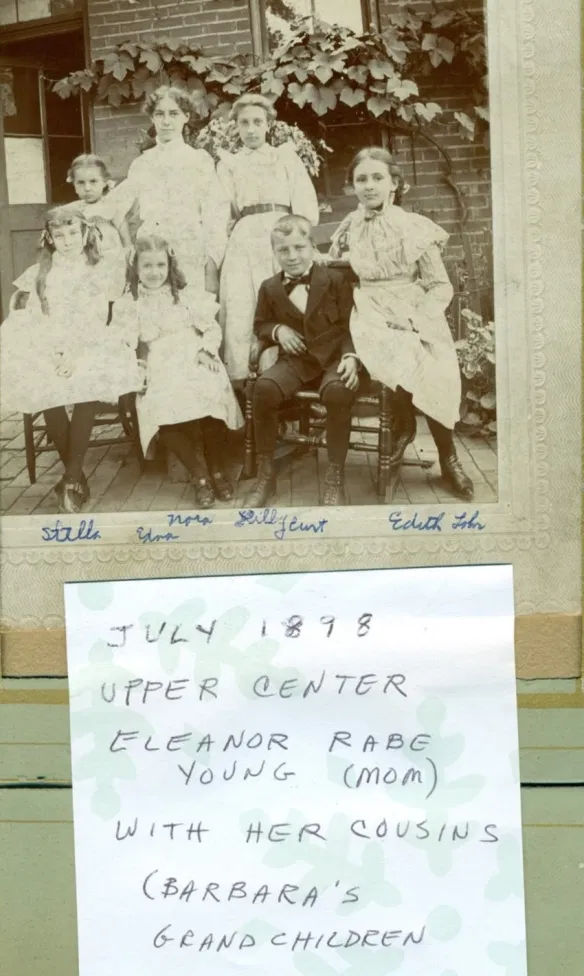 Stella Edna Nora Lilly Curt Edith Lohr
JULY 1898
UPPER CENTER
ELEANOR RABE
YOUNG (MOM)
WITH HER COUSINS
(BARBARA'S
GRANDCHILDREN